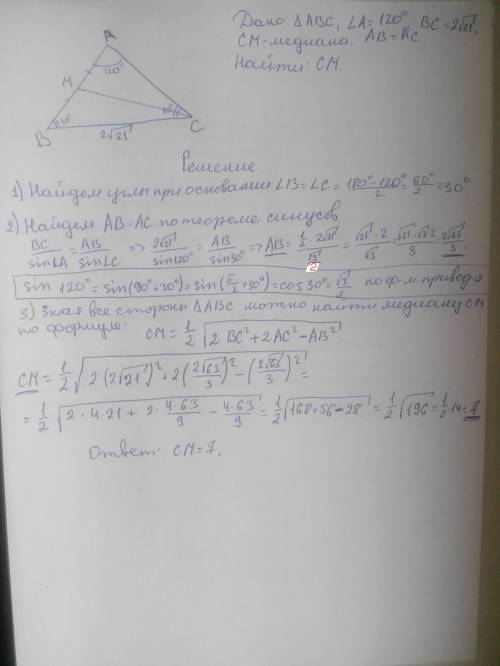 Дано: ΔABC, ∠A=120°, BC=2√21,
CM-медиана. AB=AC.
Найти: CM.
A
120°
M
B
C
2√21
Решение.
1) Найдем углы при основании ∠B=∠C= (180°-120°)/2 = 60°/2 =30°
2) Найдем AB=AC по теореме синусов
BC/sin∠A = AB/sin∠C => 2√21/sin120° = AB/sin30° => AB = (1/2 · 2√21)/(√3/2) = √21·2/√3 = √21·√3·2/3 = 2√63/3.
sin 120°=sin(90°+30°)=sin(π/2+30°)=cos30°=√3/2 по ф.м. привед
3) Зная все стороны ΔABC можно найти медиану CM
по формуле: CM= 1/2 √(2BC²+2AC²-AB²).
CM= 1/2 √(2(2√21)²+2(2√63/3)²-(2√63/3)²) =
= 1/2 √(2·4·21+2·4·63/9 - 4·63/9) = 1/2 √(168+56-28) = 1/2 √196 = 1/2·14=7
Ответ: CM=7.